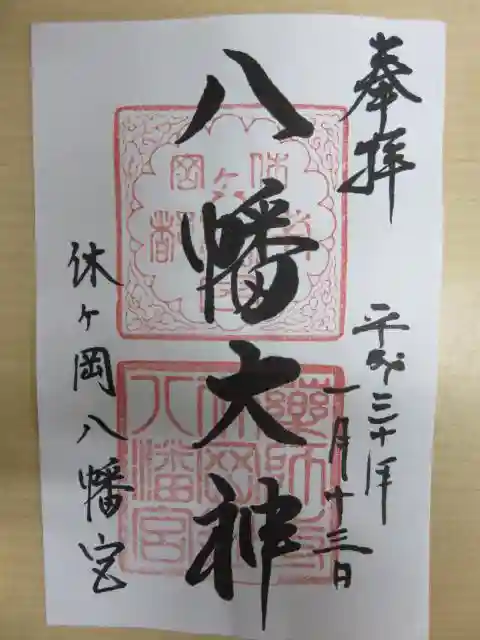 奉拝
平成三十年
一月十三日
八幡大神
休ヶ岡八幡宮